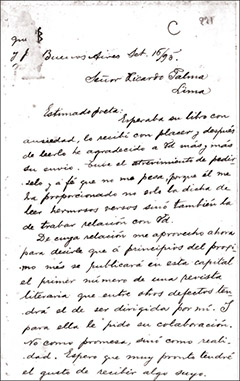 C
Buenos Aires Set. 15/95.
Señor Ricardo Palma
Lima
Estimado poeta:
Esperaba su libro con
ansiedad, lo recibí con placer y después
de leerlo le agradezco á Vd más y más
su envío. Tuve el atrevimiento de pedír
selo y á fé que no me pesa, porque él me
ha proporcionado no solo la dicha de
leer hermosos versos sinó también la
de trabar relación con Vd.
De cuya relación me aprovecho ahora
para decirle que á principios del próxi
mo més se publicará en esta capital
el primer número de una revista
literaria que entre otros defectos ten
drá el de ser dirigida por mi. Y
para ella le pido su colaboración.
No como promesa, sinó como reali
dad. Espero que muy pronto tendré
el gusto de recibir algo suyo.